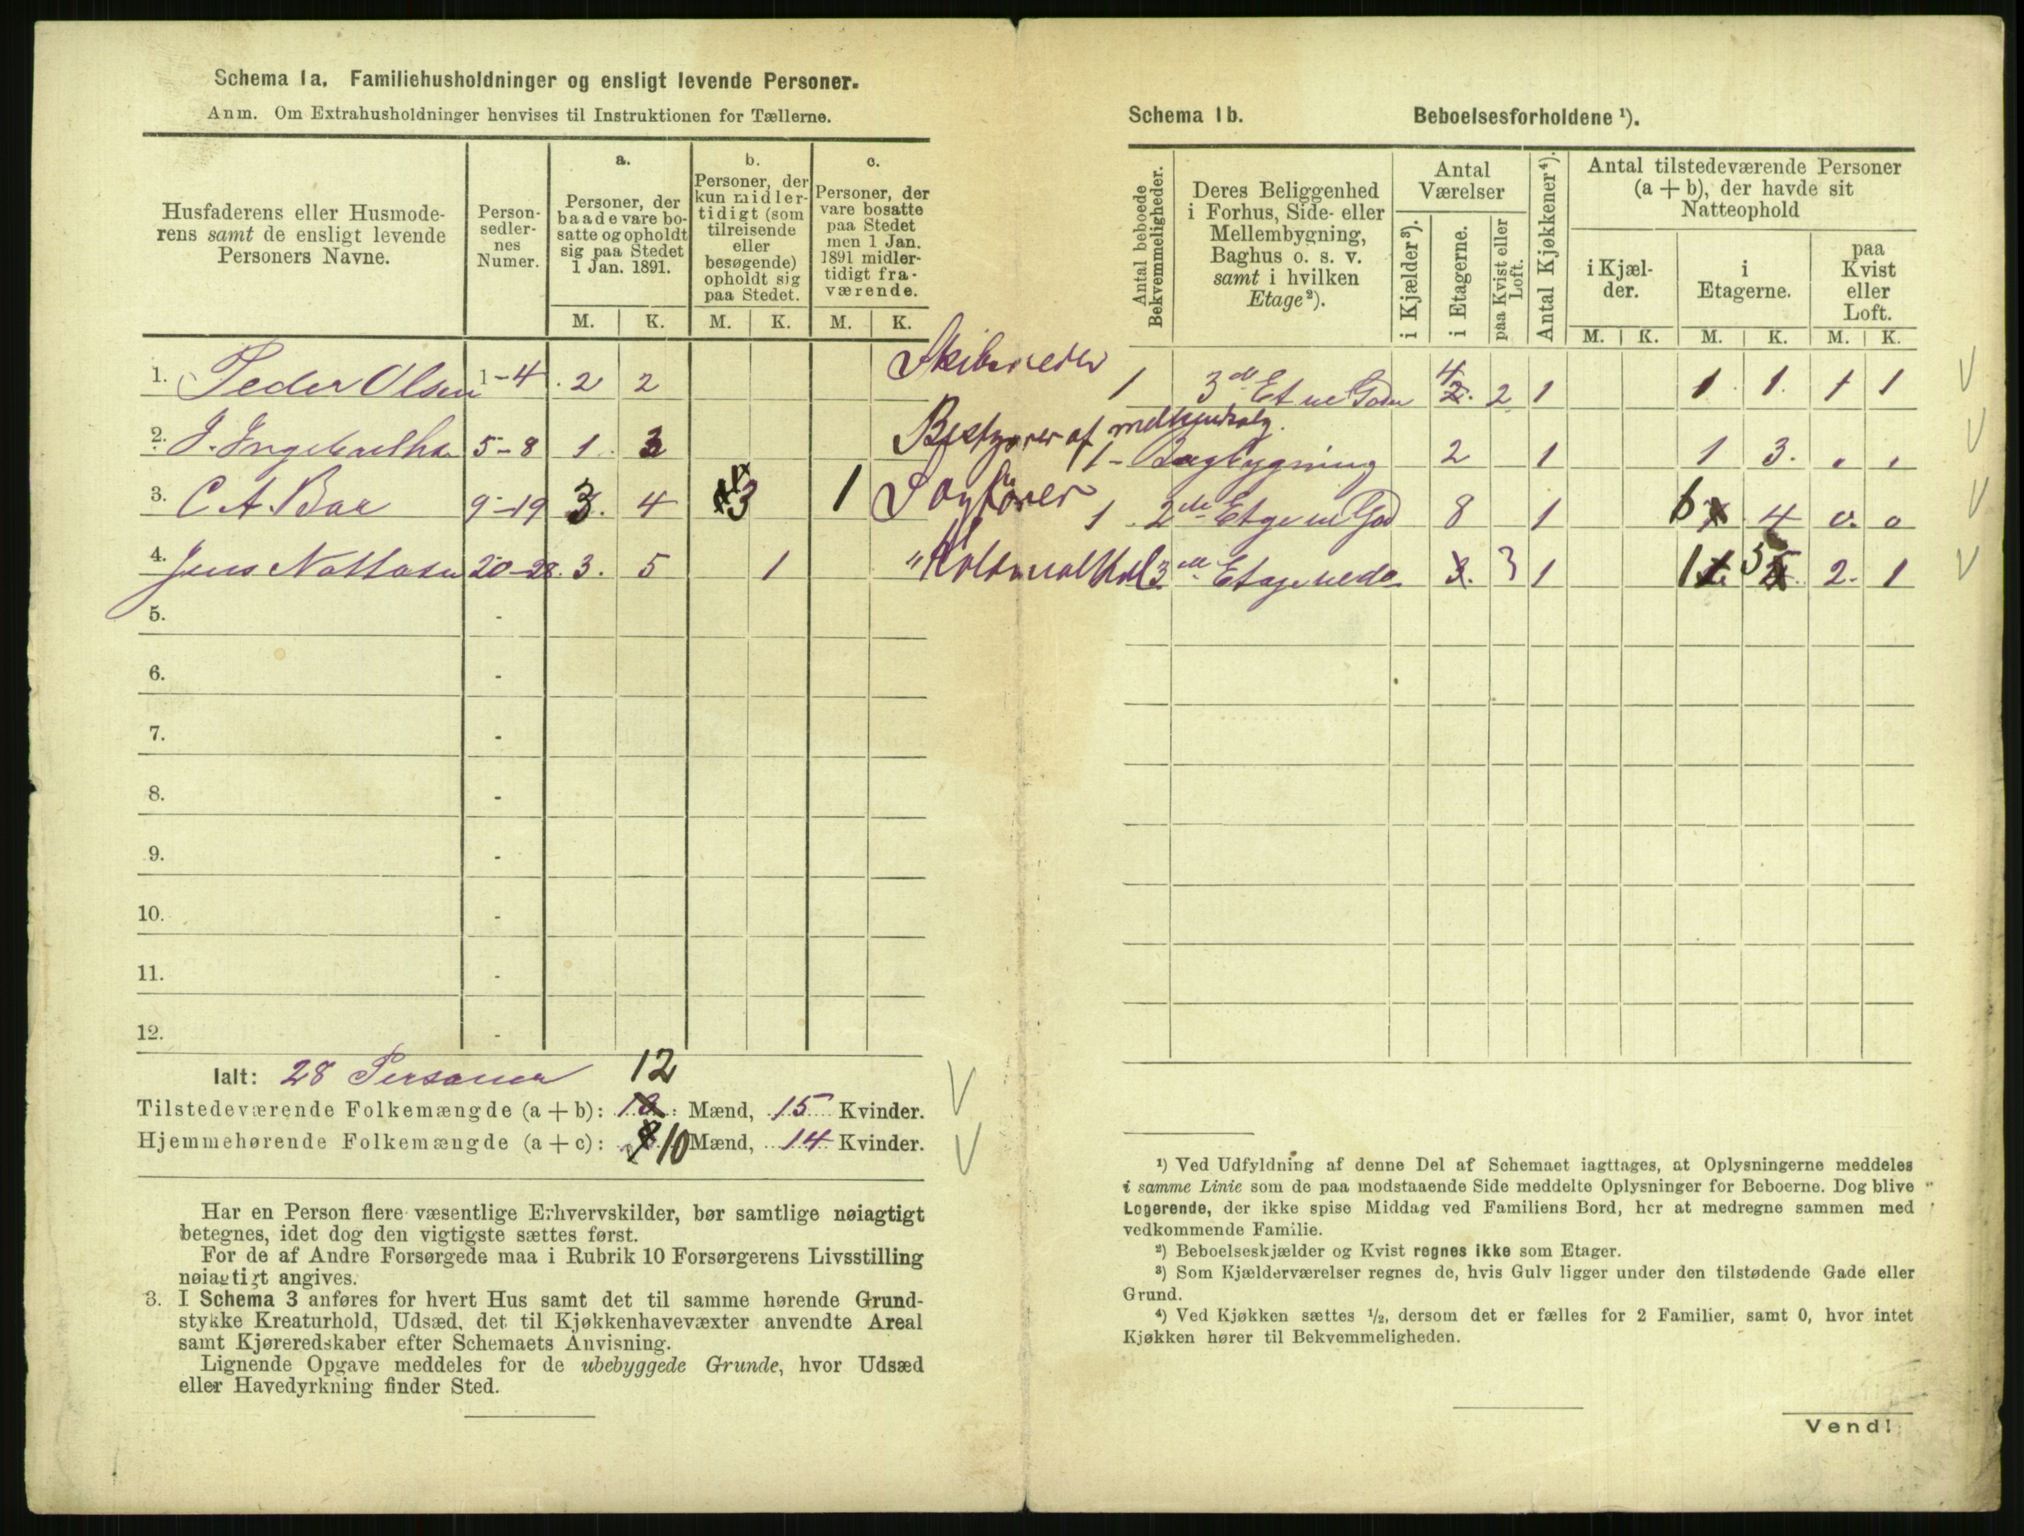 Schema 1a. Familiehusholdninger og ensligt levende Personer.
Anm. Om Extrahusholdninger henvises til Instruktionen for Tællerne.
Husfaderens eller Husmode-
rens samt de ensligt levende
Personers Navne.
Person-
sedler-
nes
Numer.
a.
Personer, der
baade vare bo-
satte og opholdt
sig paa Stedet
1 Jan. 1891.
b.
Personer, der
kun midler-
tidigt (som
tilreisende
eller
besøgende)
opholdt sig
paa Stedet.
c.
Personer, der
vare bosatte
paa Stedet
men 1 Jan.
1891 midler-
tidigt fra-
værende.
M. K. M. K. M. K.
1. Peder Olsen 1-4 2 2
2. J. 5-8 1 3
3. C A. Bar 9-19 3. 4 3 1
4. Jens 20-28 3. 5 1
5. -
6. -
7. -
8. -
9. -
10. -
11. -
12. -
Ialt: 28 Personer 12
Tilstedeværende Folkemængde (a+b): 10 Mænd, 15 Kvinder.
Hjemmehørende Folkemængde (a+c): 8 10 Mænd, 14 Kvinder.
Har en Person flere væsentlige Erhvervskilder, bør samtlige nøiagtigt
betegnes, idet dog den vigtigste sættes først.
For de af Andre Forsørgede maa i Rubrik 10 Forsørgerens Livsstilling
nøiagtigt angives.
3. I Schema 3 anføres for hvert Hus samt det til samme hørende Grund-
stykke Kreaturhold, Udsæd, det til Kjøkkenhavevæxter anvendte Areal
samt Kjøreredskaber efter Schemaets Anvisning.
Lignende Opgave meddeles for de ubebyggede Grunde, hvor Udsæd
eller Havedyrkning finder Sted.
Schema 1b. Beboelsesforholdene ¹).
Antal beboede
Bekvemmeligheder.
Deres Beliggenhed
i Forhus, Side- eller
Mellembygning,
Baghus o. s. v.
samt i hvilken
Etage²).
Antal
Værelser
i Kjælder³).
i Etagerne.
paa Kvist eller
Loft.
Antal Kjøkkener⁴).
Antal tilstedeværende Personer
(a+b), der havde sit
Natteophold
i Kjæl-
der.
i
Etagerne.
paa
Kvist
eller
Loft.
M. K. M. K. M. K.
Skibsreder 1 4 2. 2 1 1 1. 1 1
Bestyrer af
1 - Bagbygning 2 1 1 3.
Sagfører 1 8 1 6 4 0. 0
3. 3 1 1 5 2. 1
¹) Ved Udfyldning af denne Del af Schemaet iagttages, at Oplysningerne meddeles
i samme Linie som de paa modstaaende Side meddelte Oplysninger for Beboerne. Dog blive
Logerende, der ikke spise Middag ved Familiens Bord, her at medregne sammen med
vedkommende Familie.
²) Beboelseskjælder og Kvist regnes ikke som Etager.
³) Som Kjælderværelser regnes de, hvis Gulv ligger under den tilstødende Gade eller
Grund.
⁴) Ved Kjøkken sættes ½, dersom det er fælles for 2 Familier, samt 0, hvor intet
Kjøkken hører til Bekvemmeligheden.
Vend!